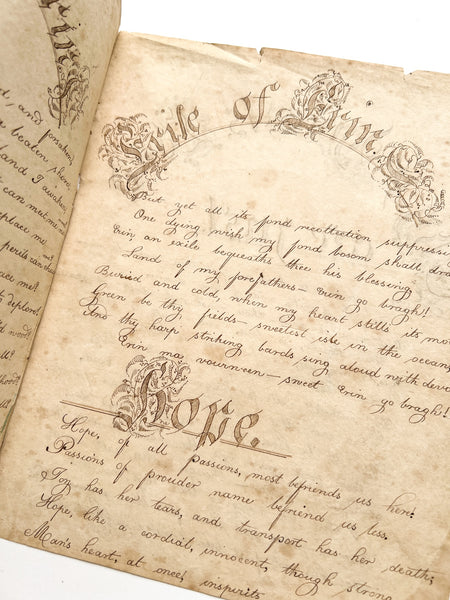 and forsaken
beaten shore,
and I awaken,
can meet
me
perils can
me?
to deplore!
Exile of Erin.
But yet all its fond recollection
One dying wish my fond bosom shall
Erin, an exile bequeaths thee his blessing
Land of my forefathers— Erin go bragh!
Buried and cold, when my heart stills its
Green be thy fields— sweetest isle in the ocean
And thy harp striking bards sing aloud with
Erin ma vourneen— sweet Erin go bragh!
Hope.
Hope, of all passions, most befriends us here:
Passions of prouder name befriend us less.
Joy has her tears, and transport has her death;
Hope, like a cordial, innocent, though strong
Man's heart, at once, inspirits